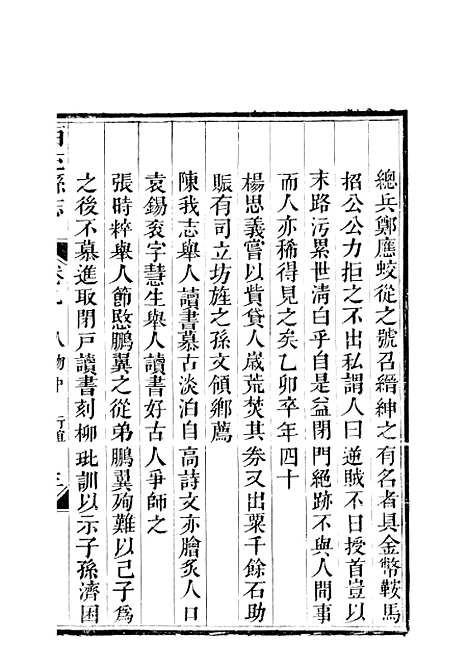 總兵鄭應蛟從之號召縉紳之有名者具金幣鞍馬
招公公力拒之不出私謂人曰逆賊不日授首豈以
末路污累世清白乎自是益閉門絕跡不與人間事
而人亦稀得見之矣乙卯卒年四十
楊思義嘗以貲貸人歲荒焚其券又出粟千餘石助
賑有司立坊旌之孫文領鄉薦
陳我志舉人讀書慕古淡泊自高詩文亦膾炙人口
袁錫袞字慧生舉人讀書好古人爭師之
張時粹舉人節愍鵬翼之從弟鵬翼殉難以己子為
之後不慕進取閉戶讀書刻柳玭訓以示子孫濟困
縣志
卷九
人物中
行誼